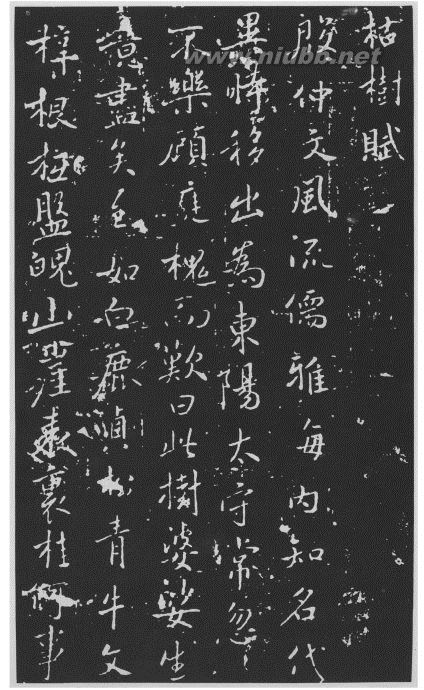 枯樹賦
殷仲文風流儒雅海內知名代
異時移出為東陽太守常忽忽
不樂顧庭槐而歎曰此樹婆娑生
意盡矣至如白鹿貞松青牛文
梓根柢盤魄山崖表裏桂何事
www.niubb.net